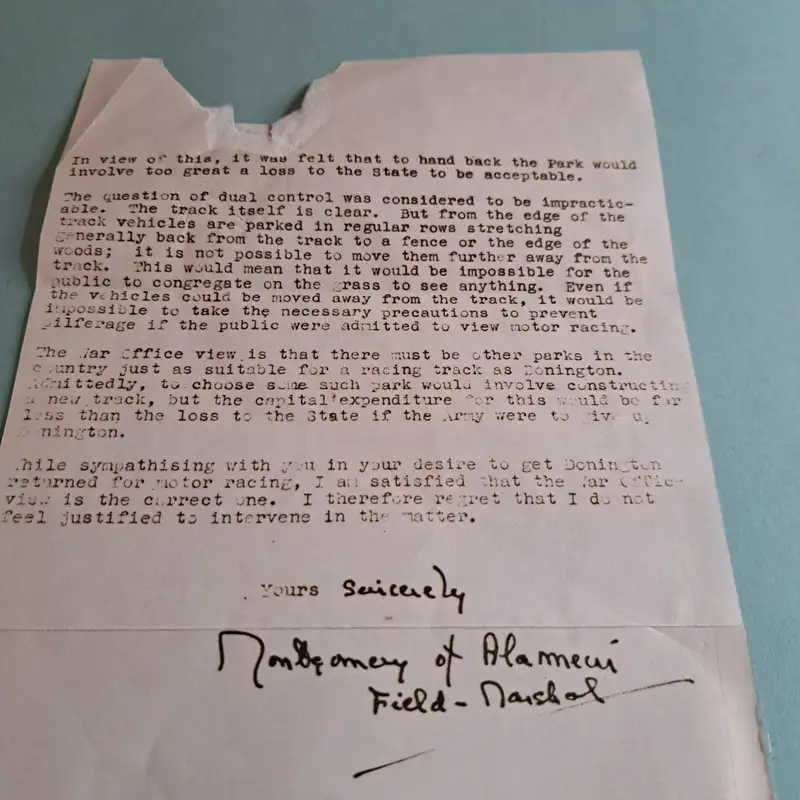 In view of this, it was felt that to hand back the Park would
involve too great a loss to the State to be acceptable.
The question of dual control was considered to be impractic-
able. The track itself is clear. But from the edge of the
track vehicles are parked in regular rows stretching
generally back from the track to a fence or the edge of the
woods; it is not possible to move them further away from the
track. This would mean that it would be impossible for the
public to congregate on the grass to see anything. Even if
the vehicles could be moved away from the track, it would be
impossible to take the necessary precautions to prevent
pilferage if the public were admitted to view motor racing.
The War Office view is that there must be other parks in the
country just as suitable for a racing track as Donington.
Admittedly, to choose some such park would involve constructing
a new track, but the capital expenditure for this would be far
less than the loss to the State if the Army were to give up
Donington.
While sympathising with you in your desire to get Donington
returned for motor racing, I am satisfied that the War Office
view is the correct one. I therefore regret that I do not
feel justified to intervene in the matter.
Yours Sincerely
Montgomery of Alamein
Field-Marshal